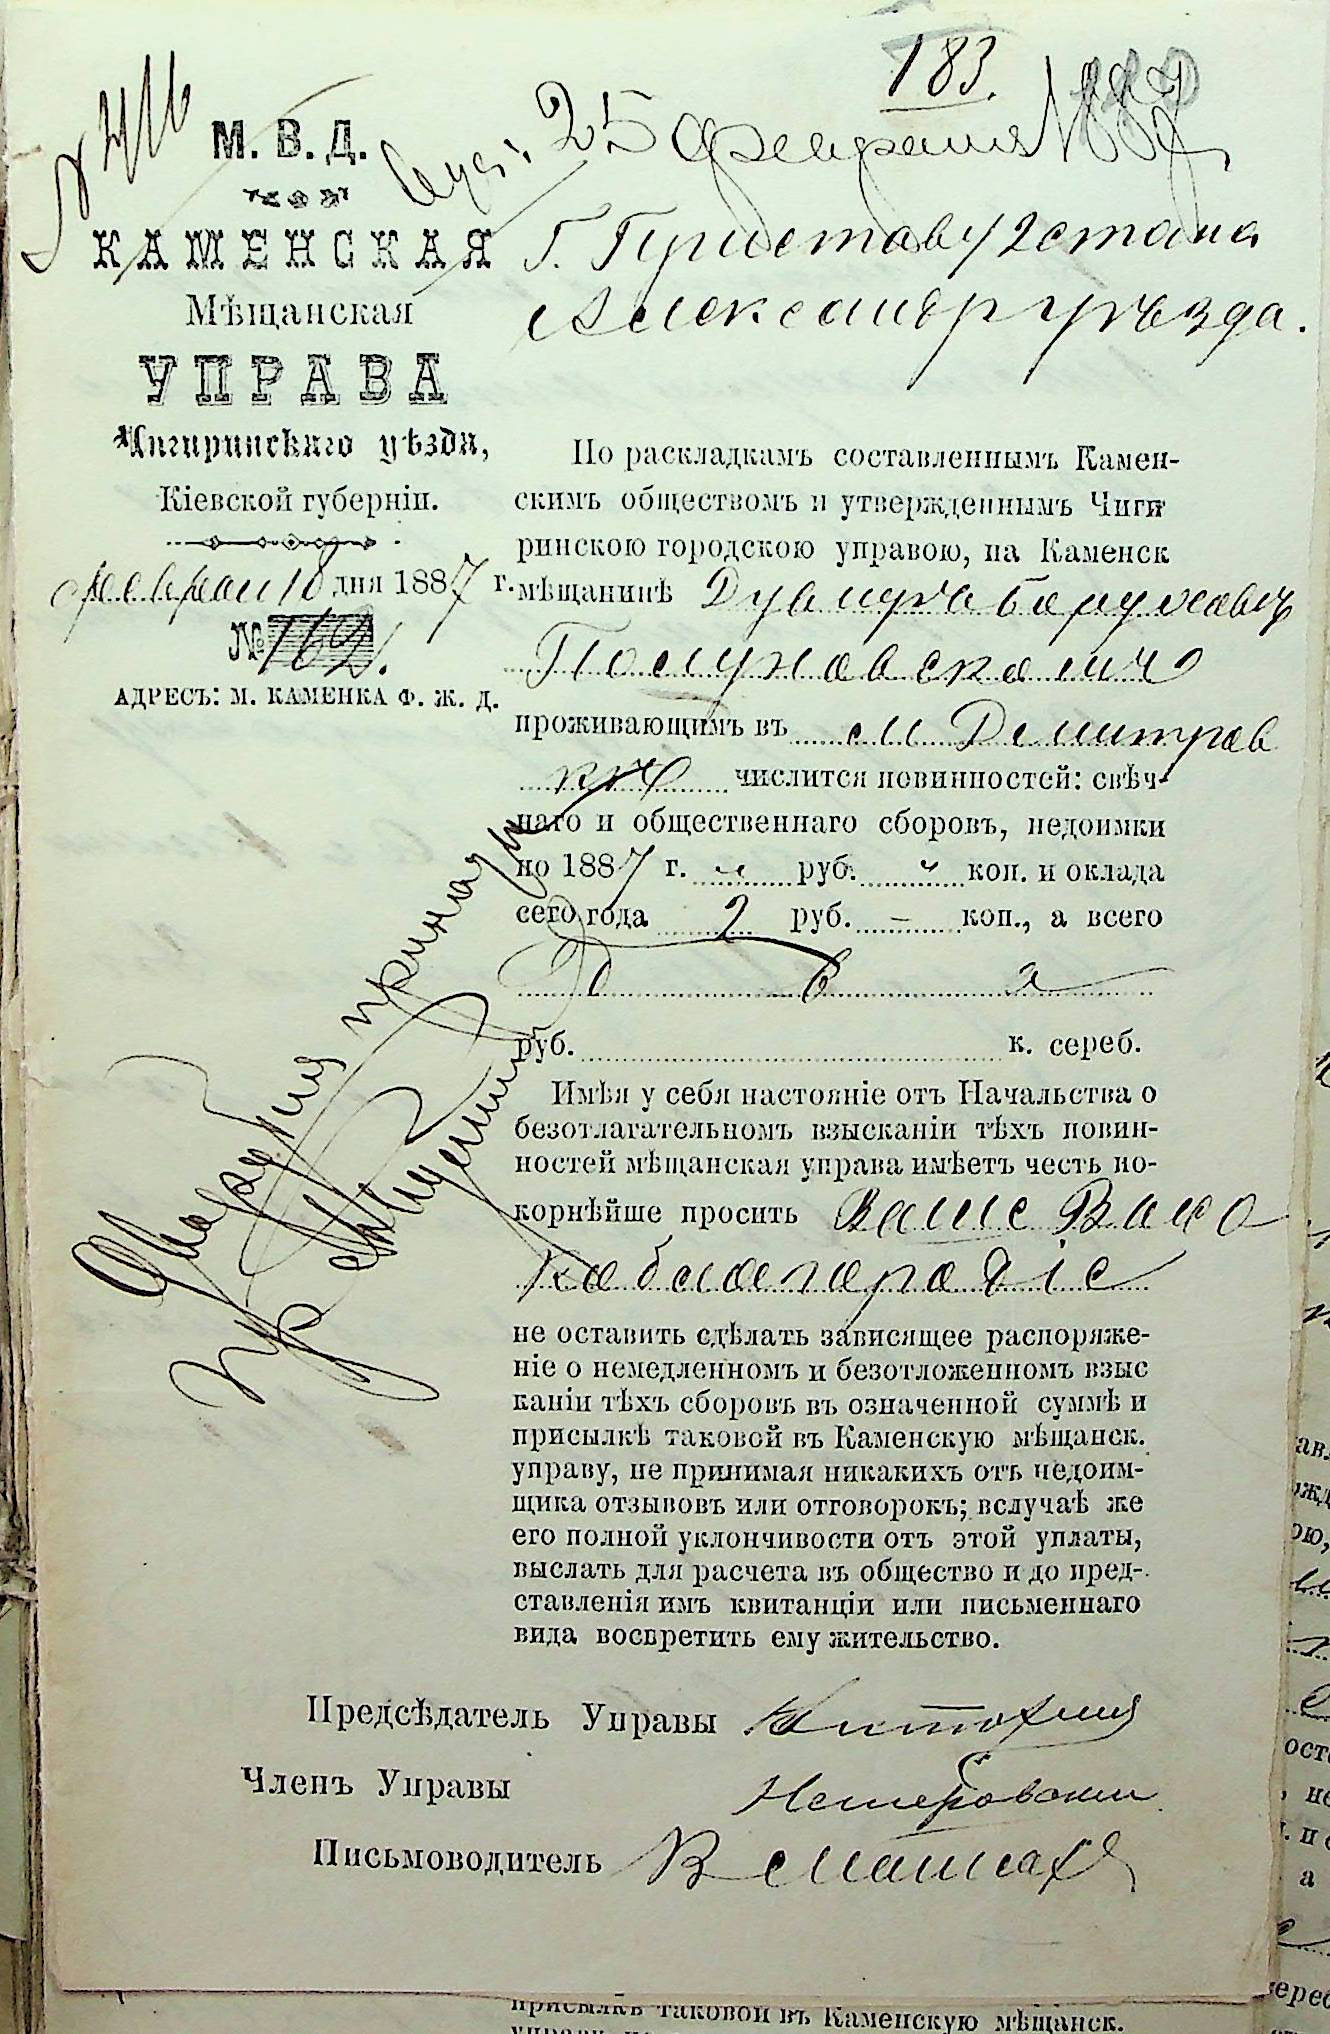 183.
25 февраля 1887
М. В. Д.
КАМЕНСКАЯ
Мѣщанская
УПРАВА
Чигиринскаго уѣзда,
Кіевской губерніи.
Февраля 18 дня 1887 г.
№ 162.
АДРЕСЪ: М. КАМЕНКА Ф. Ж. Д.
Г. Приставу 2 стана
Александр уѣзда.
По раскладкамъ составленнымъ Камен-
скимъ обществомъ и утвержденнымъ Чиги
ринскою городскою управою, на Каменск
мѣщанинѣ
проживающимъ въ м Дмитров
кѣ числится повинностей: свѣч-
наго и общественнаго сборовъ, недоимки
по 1887 г. „ руб. „ коп. и оклада
сего года 2 руб. – коп., а всего
Два
руб. к. сереб.
Имѣя у себя настояніе отъ Начальства о
безотлагательномъ взысканіи тѣхъ повин-
ностей мѣщанская управа имѣетъ честь по-
корнѣйше просить Ваше Высо
коблагородіе
не оставить сдѣлать зависящее распоряже-
ніе о немедленномъ и безотложенномъ взыс
каніи тѣхъ сборовъ въ означенной суммѣ и
присылкѣ таковой въ Каменскую мѣщанск.
управу, не принимая никакихъ отъ недоим-
щика отзывовъ или отговорокъ; вслучаѣ же
его полной уклончивости отъ этой уплаты,
выслать для расчета въ общество и до пред-
ставленія имъ квитанціи или письменнаго
вида воспретить ему жительство.
Предсѣдатель Управы
Членъ Управы
Письмоводитель
присылкѣ таковой въ Каменскую мѣщанск.